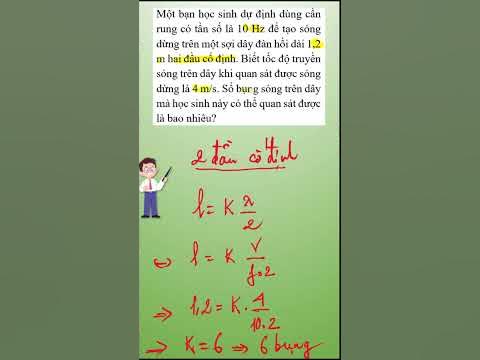 Một bạn học sinh dự định dùng cần
rung có tần số là 10 Hz để tạo sóng
dừng trên một sợi dây đàn hồi dài 1,2
m hai đầu cố định. Biết tốc độ truyền
sóng trên dây khi quan sát được sóng
dừng là 4 m/s. Số bụng sóng trên dây
mà học sinh này có thể quan sát được
là bao nhiêu?
2 đầu cố định
l = K λ/2
⇔ l = K V/f.2
⇒ 1,2 = K . 4/10.2
⇒ K = 6 ⇒ 6 bụng